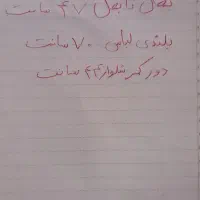 بغل تا بغل ۴۷ سانت
بلندی لباس ۷۰ سانت
دور کمر شلوار ۴۴ سانت